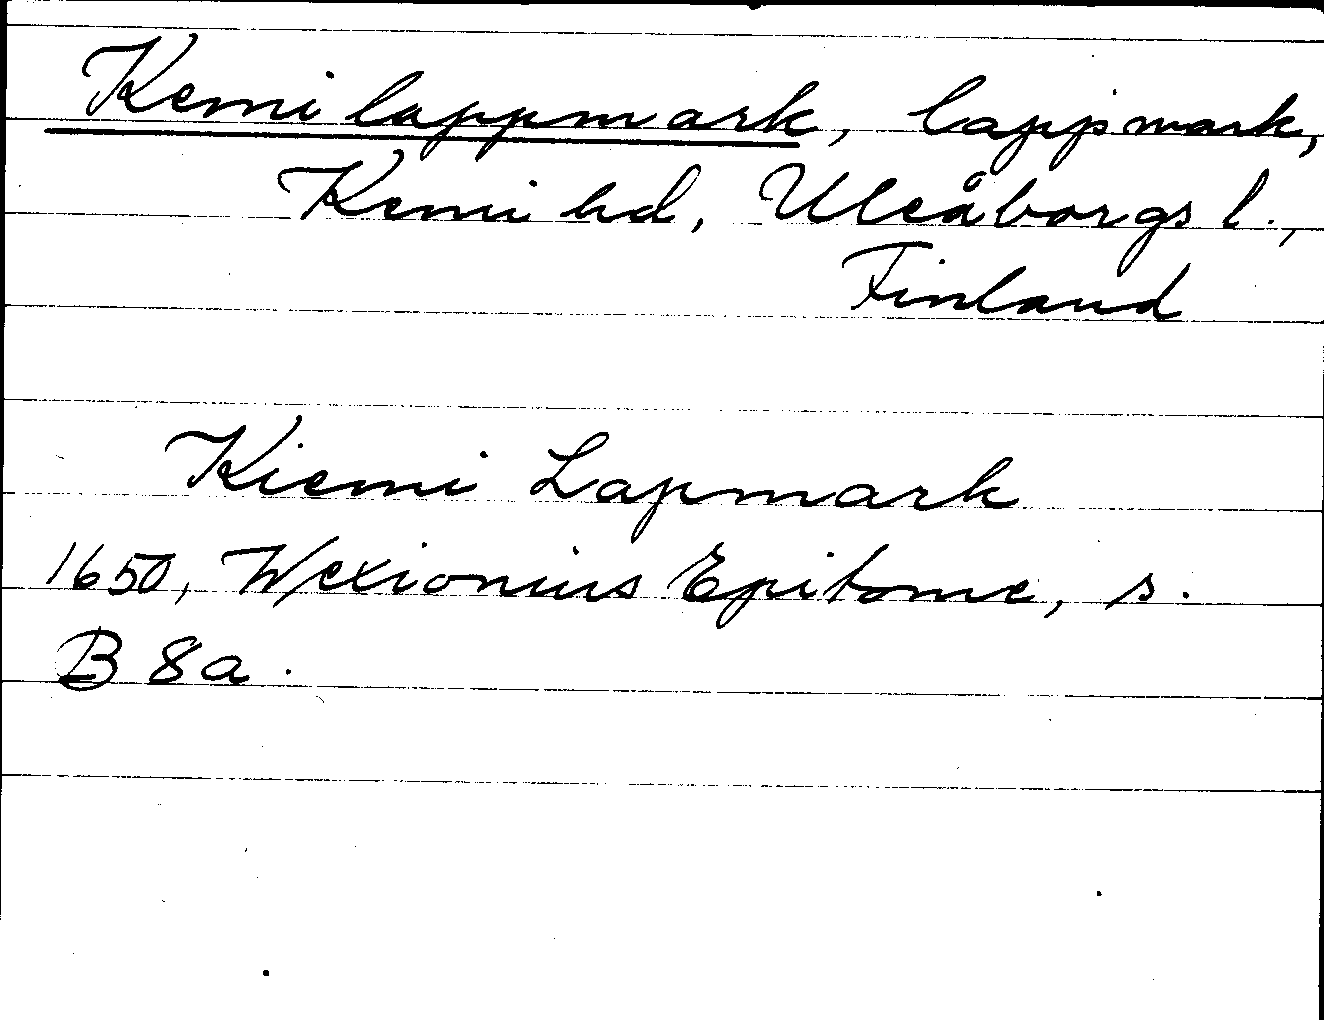 Kemi lappmark, lappmark,
Kemi hd, Uleåborgs l.,
Finland
Kiemi Lapmark
1650, Wexionius Epitome, s.
B 8a.